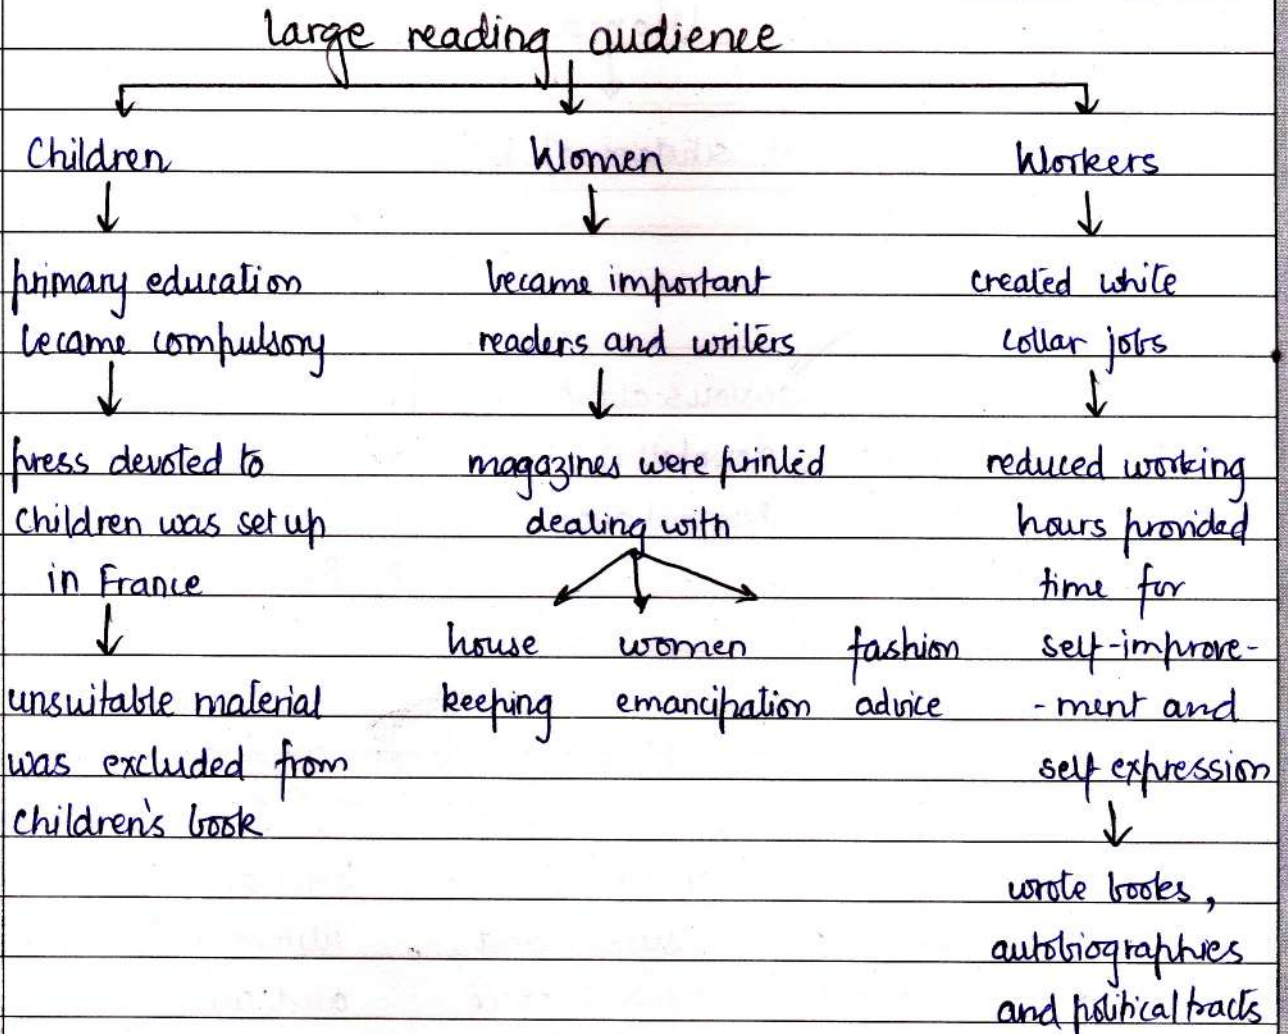 large reading audience
Children
primary education
became compulsory
press devoted to
children was set up
in France
unsuitable material
was excluded from
children's book
Women
became important
readers and writers
magazines were printed
dealing with
house
keeping
women
emancipation
fashion
advice
Workers
created white
collar jobs
reduced working
hours provided
time for
self-improve-
-ment and
self expression
wrote books,
autobiographies
and political tracts